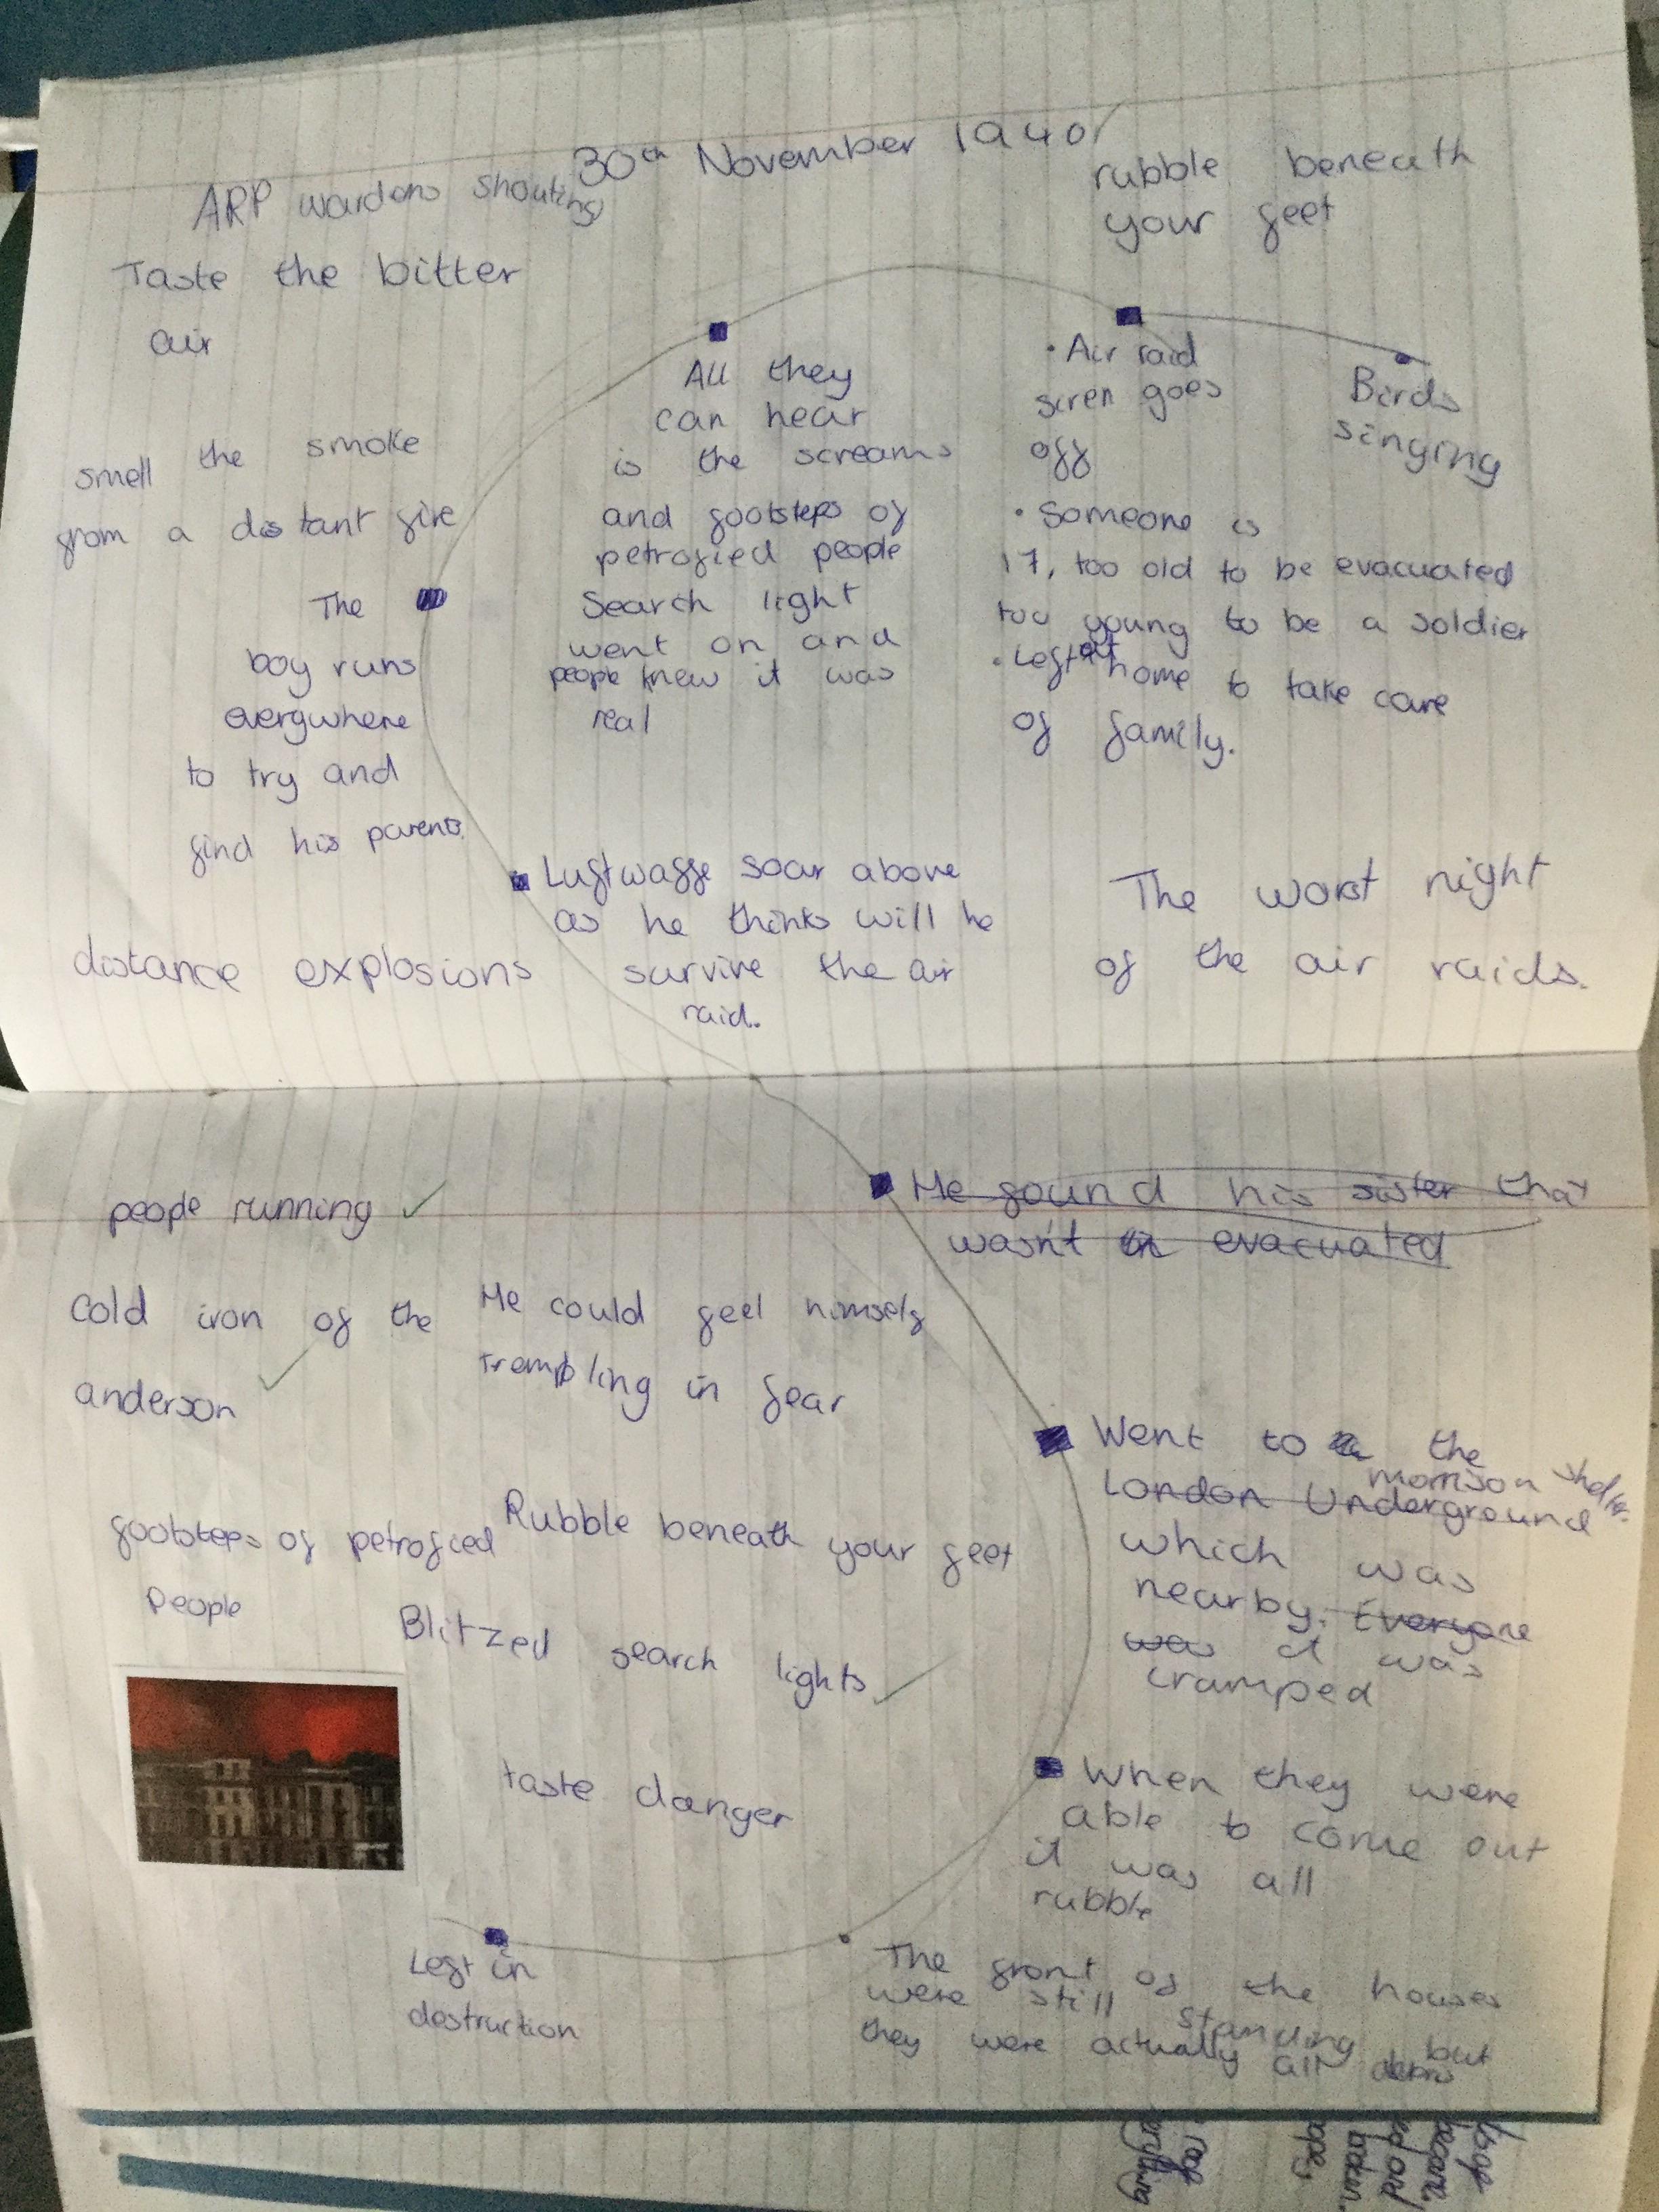 30th November 1940
ARP wardens shouting
rubble beneath
your feet
Taste the bitter
air
All they
can hear
is the screams
and footsteps of
petrofied people
Search light
went on and
people knew it was
real
• Air raid
siren goes
off
• Someone is
17, too old to be evacuated
too young to be a soldier
• Left at home to take care
of family.
Birds
singing
smell the smoke
from a distant fire
The
boy runs
everywhere
to try and
find his parents.
Luftwaffe soar above
as he thinks will he
survive the air
raid.
The worst night
of the air raids.
distance explosions
people running ✓
He found his sister that
wasn't evacuated
cold iron of the
anderson ✓
He could feel himself
trembling in fear
Went to the
morrison shelter.
London Underground
which was
nearby. Everyone
was it was
cramped
footsteps of petrofied
people
Rubble beneath your feet
Blitzed search lights ✓
taste danger
When they were
able to come out
it was all
rubble
Left in
destruction
The front of the houses
were still standing but
they were actually all